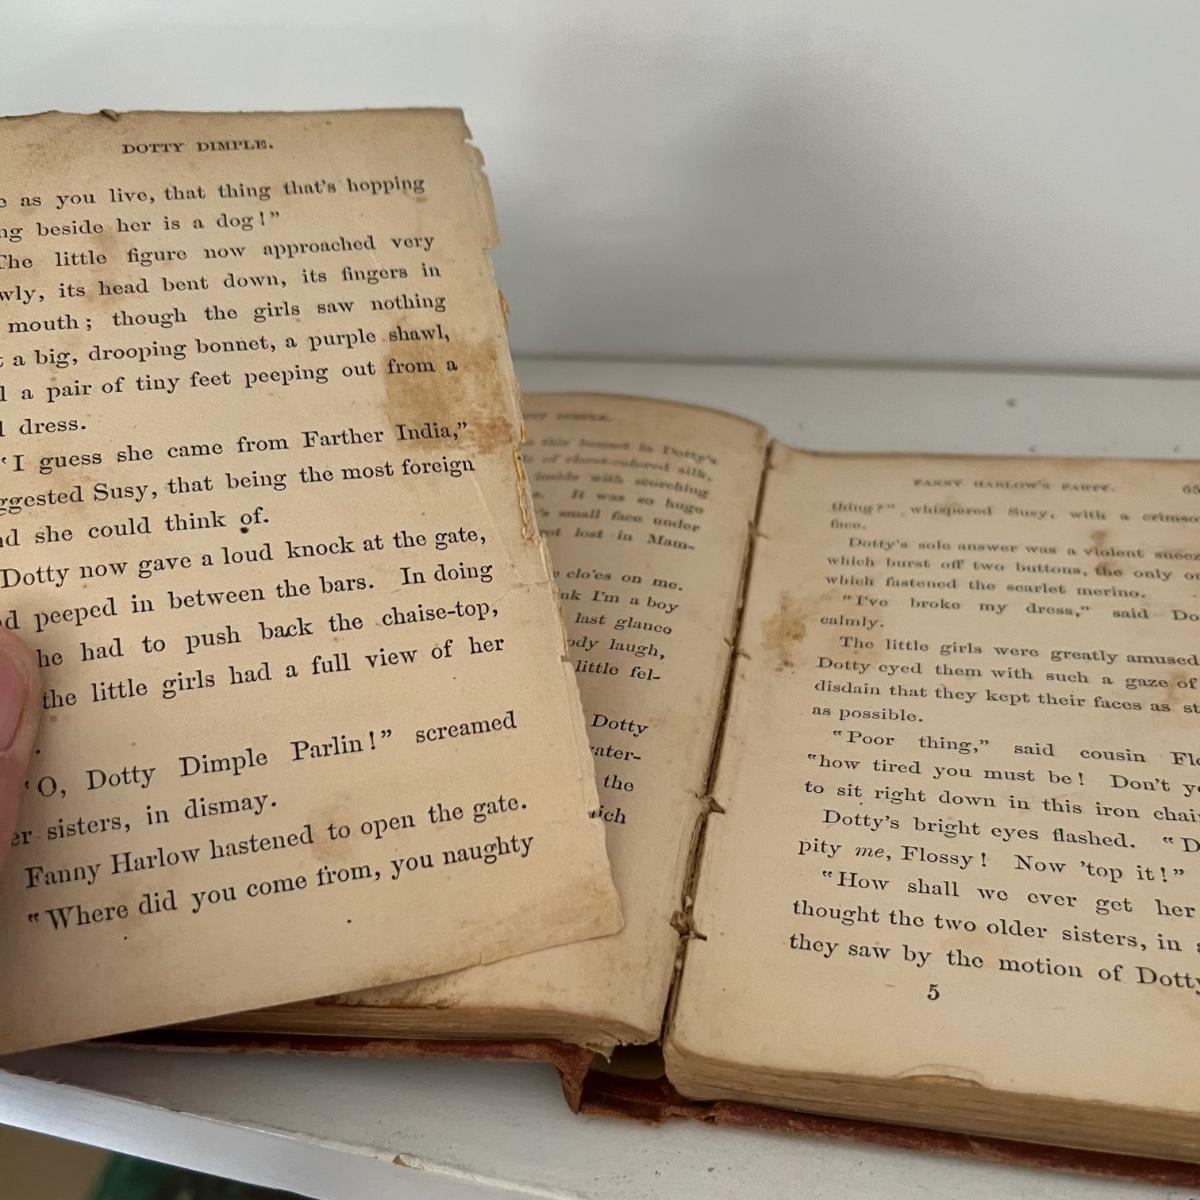 DOTTY DIMPLE.
as you live, that thing that's hopping
ng beside her is a dog!"
The little figure now approached very
wly, its head bent down, its fingers in
mouth; though the girls saw nothing
t a big, drooping bonnet, a purple shawl,
l a pair of tiny feet peeping out from a
l dress.
"I guess she came from Farther India,"
ggested Susy, that being the most foreign
nd she could think of.
Dotty now gave a loud knock at the gate,
d peeped in between the bars. In doing
he had to push back the chaise-top,
the little girls had a full view of her
.
"O, Dotty Dimple Parlin!" screamed
er sisters, in dismay.
Fanny Harlow hastened to open the gate.
"Where did you come from, you naughty
this bonnet is Dotty's
of claret-colored silk,
inside with scorching
It was so huge
's small face under
lost in Mam-
clo'es on me.
nk I'm a boy
last glance
ody laugh,
little fel-
Dotty
ater-
the
ich
FANNY HARLOW'S PARTY. 65
thing?" whispered Susy, with a crimso
face.
Dotty's sole answer was a violent sneez
which burst off two buttons, the only o
which fastened the scarlet merino.
"I've broke my dress," said Do
calmly.
The little girls were greatly amused
Dotty eyed them with such a gaze of
disdain that they kept their faces as st
as possible.
"Poor thing," said cousin Flo
"how tired you must be! Don't y
to sit right down in this iron chai
Dotty's bright eyes flashed. "D
pity me, Flossy! Now 'top it!"
"How shall we ever get her
thought the two older sisters, in
they saw by the motion of Dotty
5